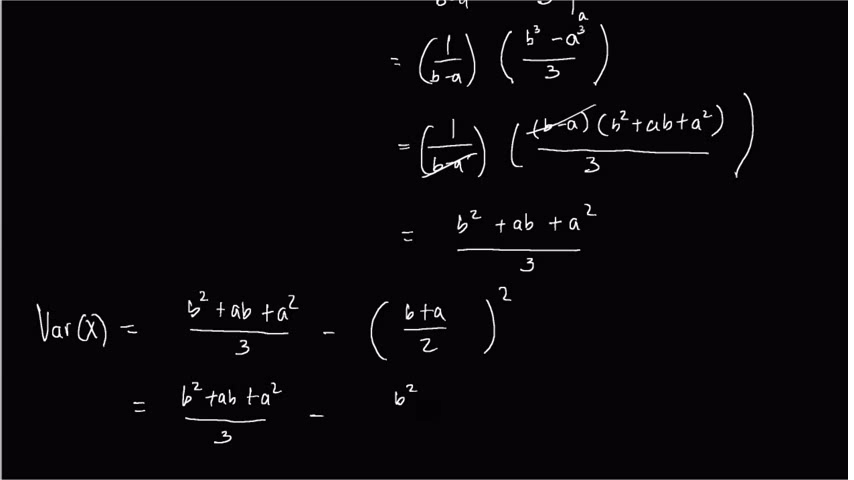 = (1/(b-a)) ((b³ - a³)/3)
= (1/(b-a)) ((b-a)(b² + ab + a²)/3)
= (b² + ab + a²)/3
Var(X) = (b² + ab + a²)/3 - ((b+a)/2)²
= (b² + ab + a²)/3 - b²